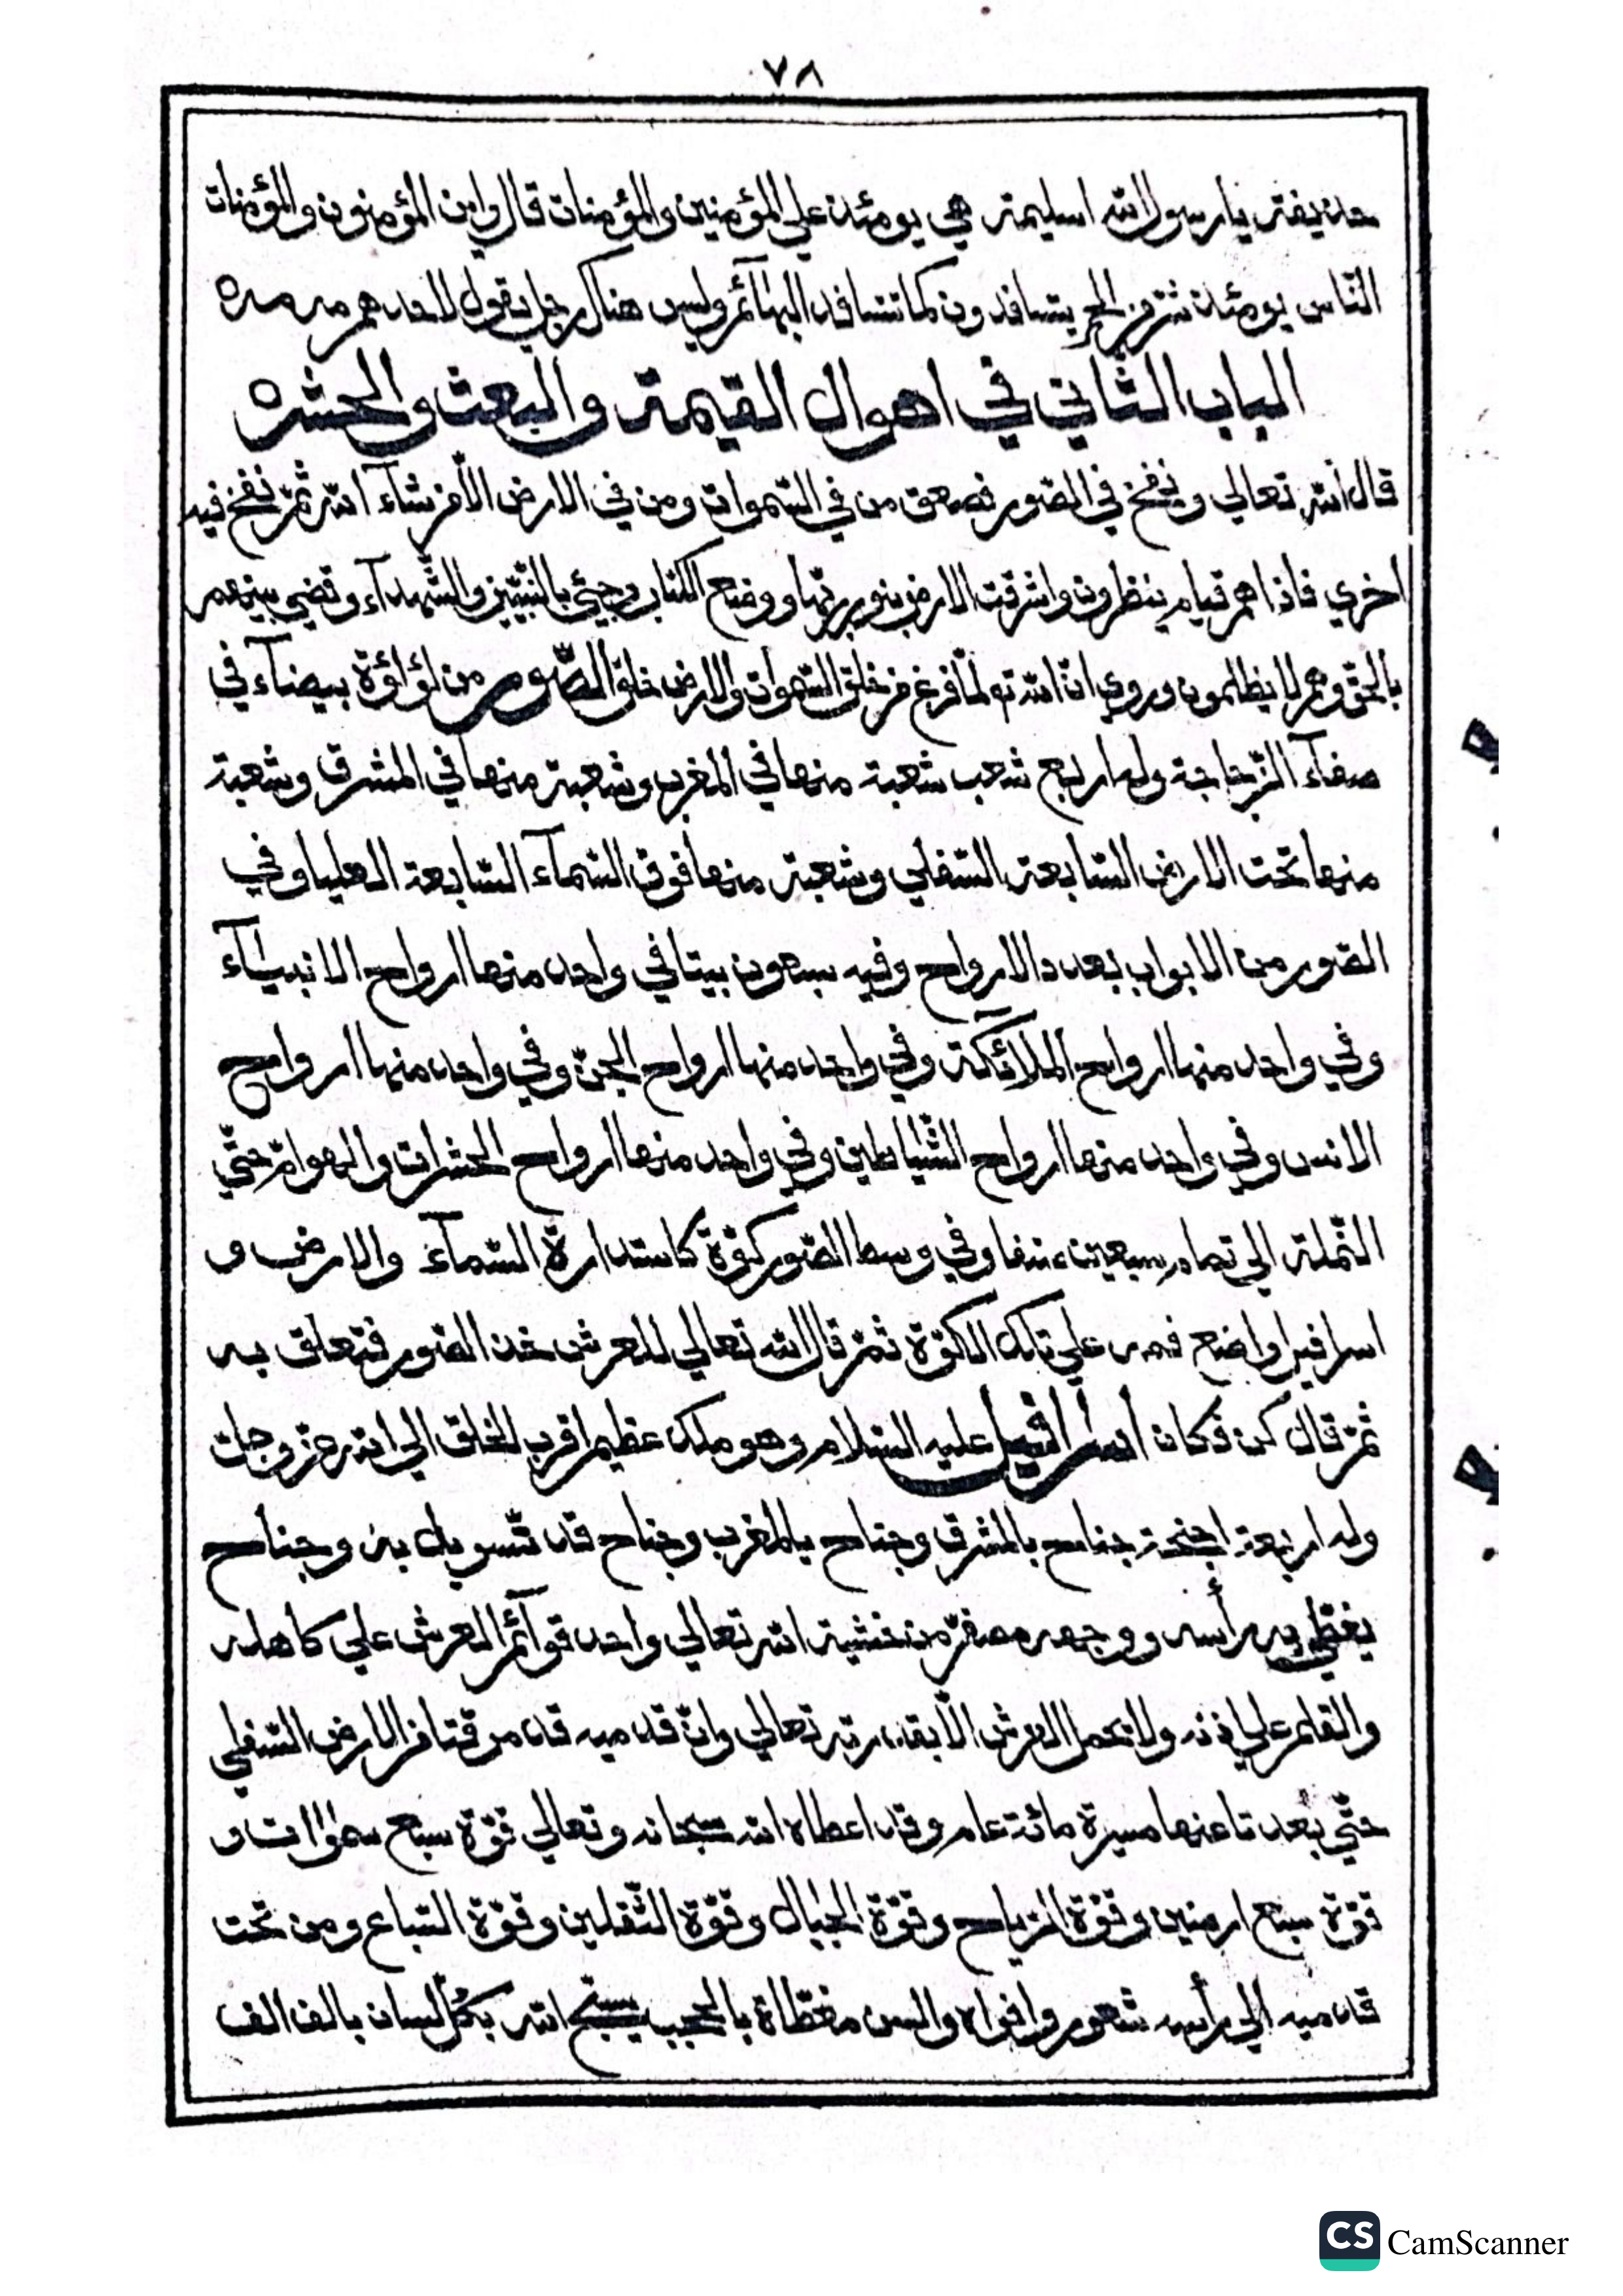 ٧٨
حذيفة يا رسول الله اسليمة هي يومئذ علي المؤمنين والمؤمنات قال واين المؤمنون والمؤمنات
النّاس يومئذ شرّ من الحمر يتسافدون كما تتسافد البهائم وليس هناك رجل يقول لاحدهم مه مه
الباب الثّاني في اهوال القيمة والبعث والحشره
قال الله تعالي ونفخ في الصّور فصعق من في السّموات ومن في الارض الّا من شآء الله ثمّ نفخ فيه
اخري فاذا هم قيام ينظرون واشرقت الارض بنور ربّها ووضع الكتاب وجيئ بالنّبيّين والشّهدآء وقضي بينهم
بالحقّ وهم لا يظلمون وروي انّ الله تع لمّا فرغ من خلق السّموات والارض خلق الصّور من لؤلؤة بيضآء في
صفآء الزّجاجة وله اربع شعب شعبة منها في المغرب وشعبة منها في المشرق وشعبة
منها تحت الارض السّابعة السّفلي وشعبة منها فوق السّمآء السّابعة العليا وفي
الصّور من الابواب بعدد الارواح وفيه سبعون بيتا في واحد منها ارواح الانبيآء
وفي واحد منها ارواح الملآئكة وفي واحد منها ارواح الجنّ وفي واحد منها ارواح
الانس وفي واحد منها ارواح الشّياطين وفي واحد منها ارواح الحشرات والهوامّ حتّي
النّملة الي تمام سبعين صنفا وفي وسط الصّور كوّة كاستدارة السّمآء والارض و
اسرافيل واضع فمه علي تلك الكوّة ثمّ قال الله تعالي للعرش خذ الصّور فتعلق به
ثمّ قال كن فكان اسرافيل عليه السّلام وهو ملك عظيم اقرب الخلق الي الله عزّ وجلّ
وله اربعة اجنحة جناح بالمشرق وجناح بالمغرب وجناح قد تسربل به وجناح
يغطّي به رأسه ووجهه مصفرّ من خشية الله تعالي واحد قوآئم العرش علي كاهله
والقلم علي اذنه ولا يحمل العرش الّا بقدرته تعالي وانّ قدميه قد مرقتا من الارض السّفلي
حتّي بعدتا عنها مسيرة مائة عام وقد اعطاه الله سبحانه وتعالي قوّة سبع سموات و
قوّة سبع ارضين وقوّة الرّياح وقوّة الجبال وقوّة الثّقلين وقوّة السّباع ومن تحت
قدميه الي رأسه شعور وافواه والسن مغطّاة بالحجب يسبّح الله بكلّ لسان بالف الف
CS CamScanner